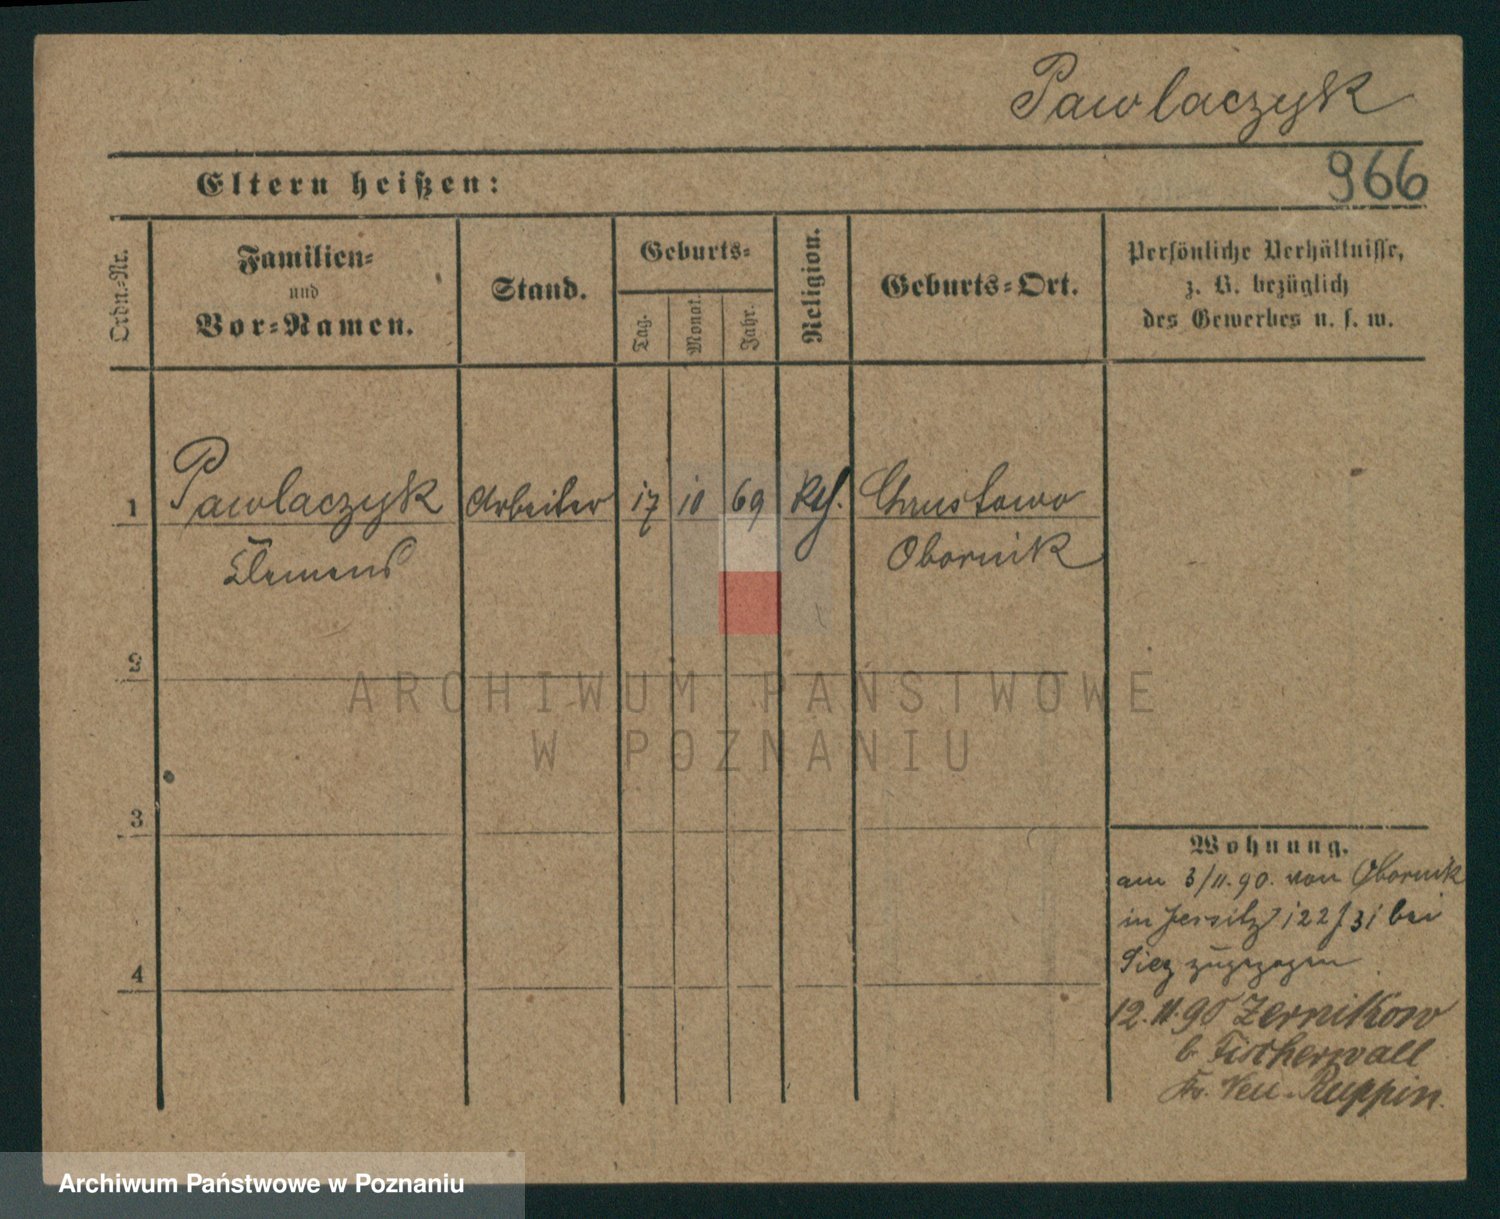 Pawlaczyk
966
Eltern heißen:
Ordn.-Nr.
Familien-
und
Vor-Namen.
Stand.
Geburts-
Tag.
Monat.
Jahr.
Religion.
Geburts-Ort.
Persönliche Verhältnisse,
z. B. bezüglich
des Gewerbes u. s. w.
1 Pawlaczyk Arbeiter 17 10 69 Kth. Chrustowo
Clemens Obornik
2
3
4
Wohnung.
am 3/11.90. von Obornik
in Jersitz 122/31 bei
zugezogen
12.11.90 Zernikow
b. Fischerwall
Kr. Neu-Ruppin.
ARCHIWUM PAŃSTWOWE
W POZNANIU
Archiwum Państwowe w Poznaniu